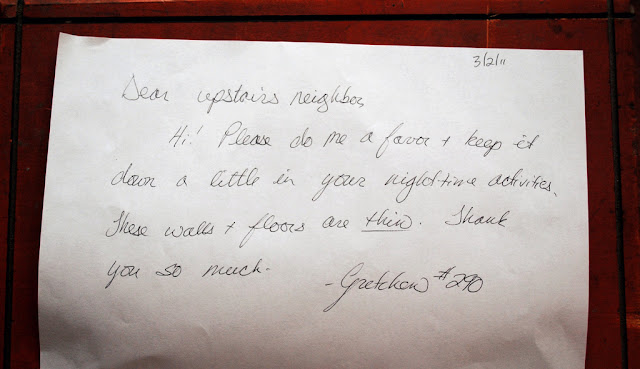 3/2/11
Dear upstairs neighbor,
Hi! Please do me a favor + keep it
down a little in your night-time activities.
These walls + floors are thin. Thank
you so much.
-Gretchen #290